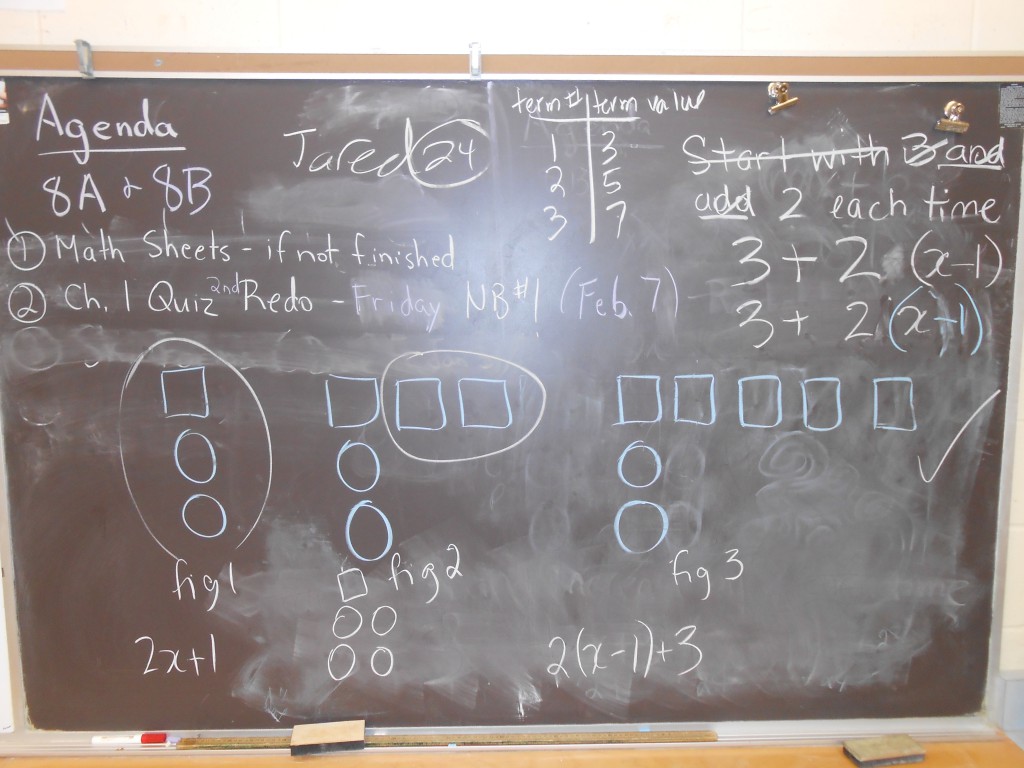 Agenda
8A & 8B
Jared 24
term # term value
1 3
2 5
3 7
Start with 3 and
add 2 each time
3 + 2 (x-1)
3 + 2 (x-1)
① Math Sheets - if not finished
② Ch. 1 Quiz 2nd Redo - Friday NB#1 (Feb. 7)
fig 1
fig 2
fig 3
2x+1
2(x-1)+3